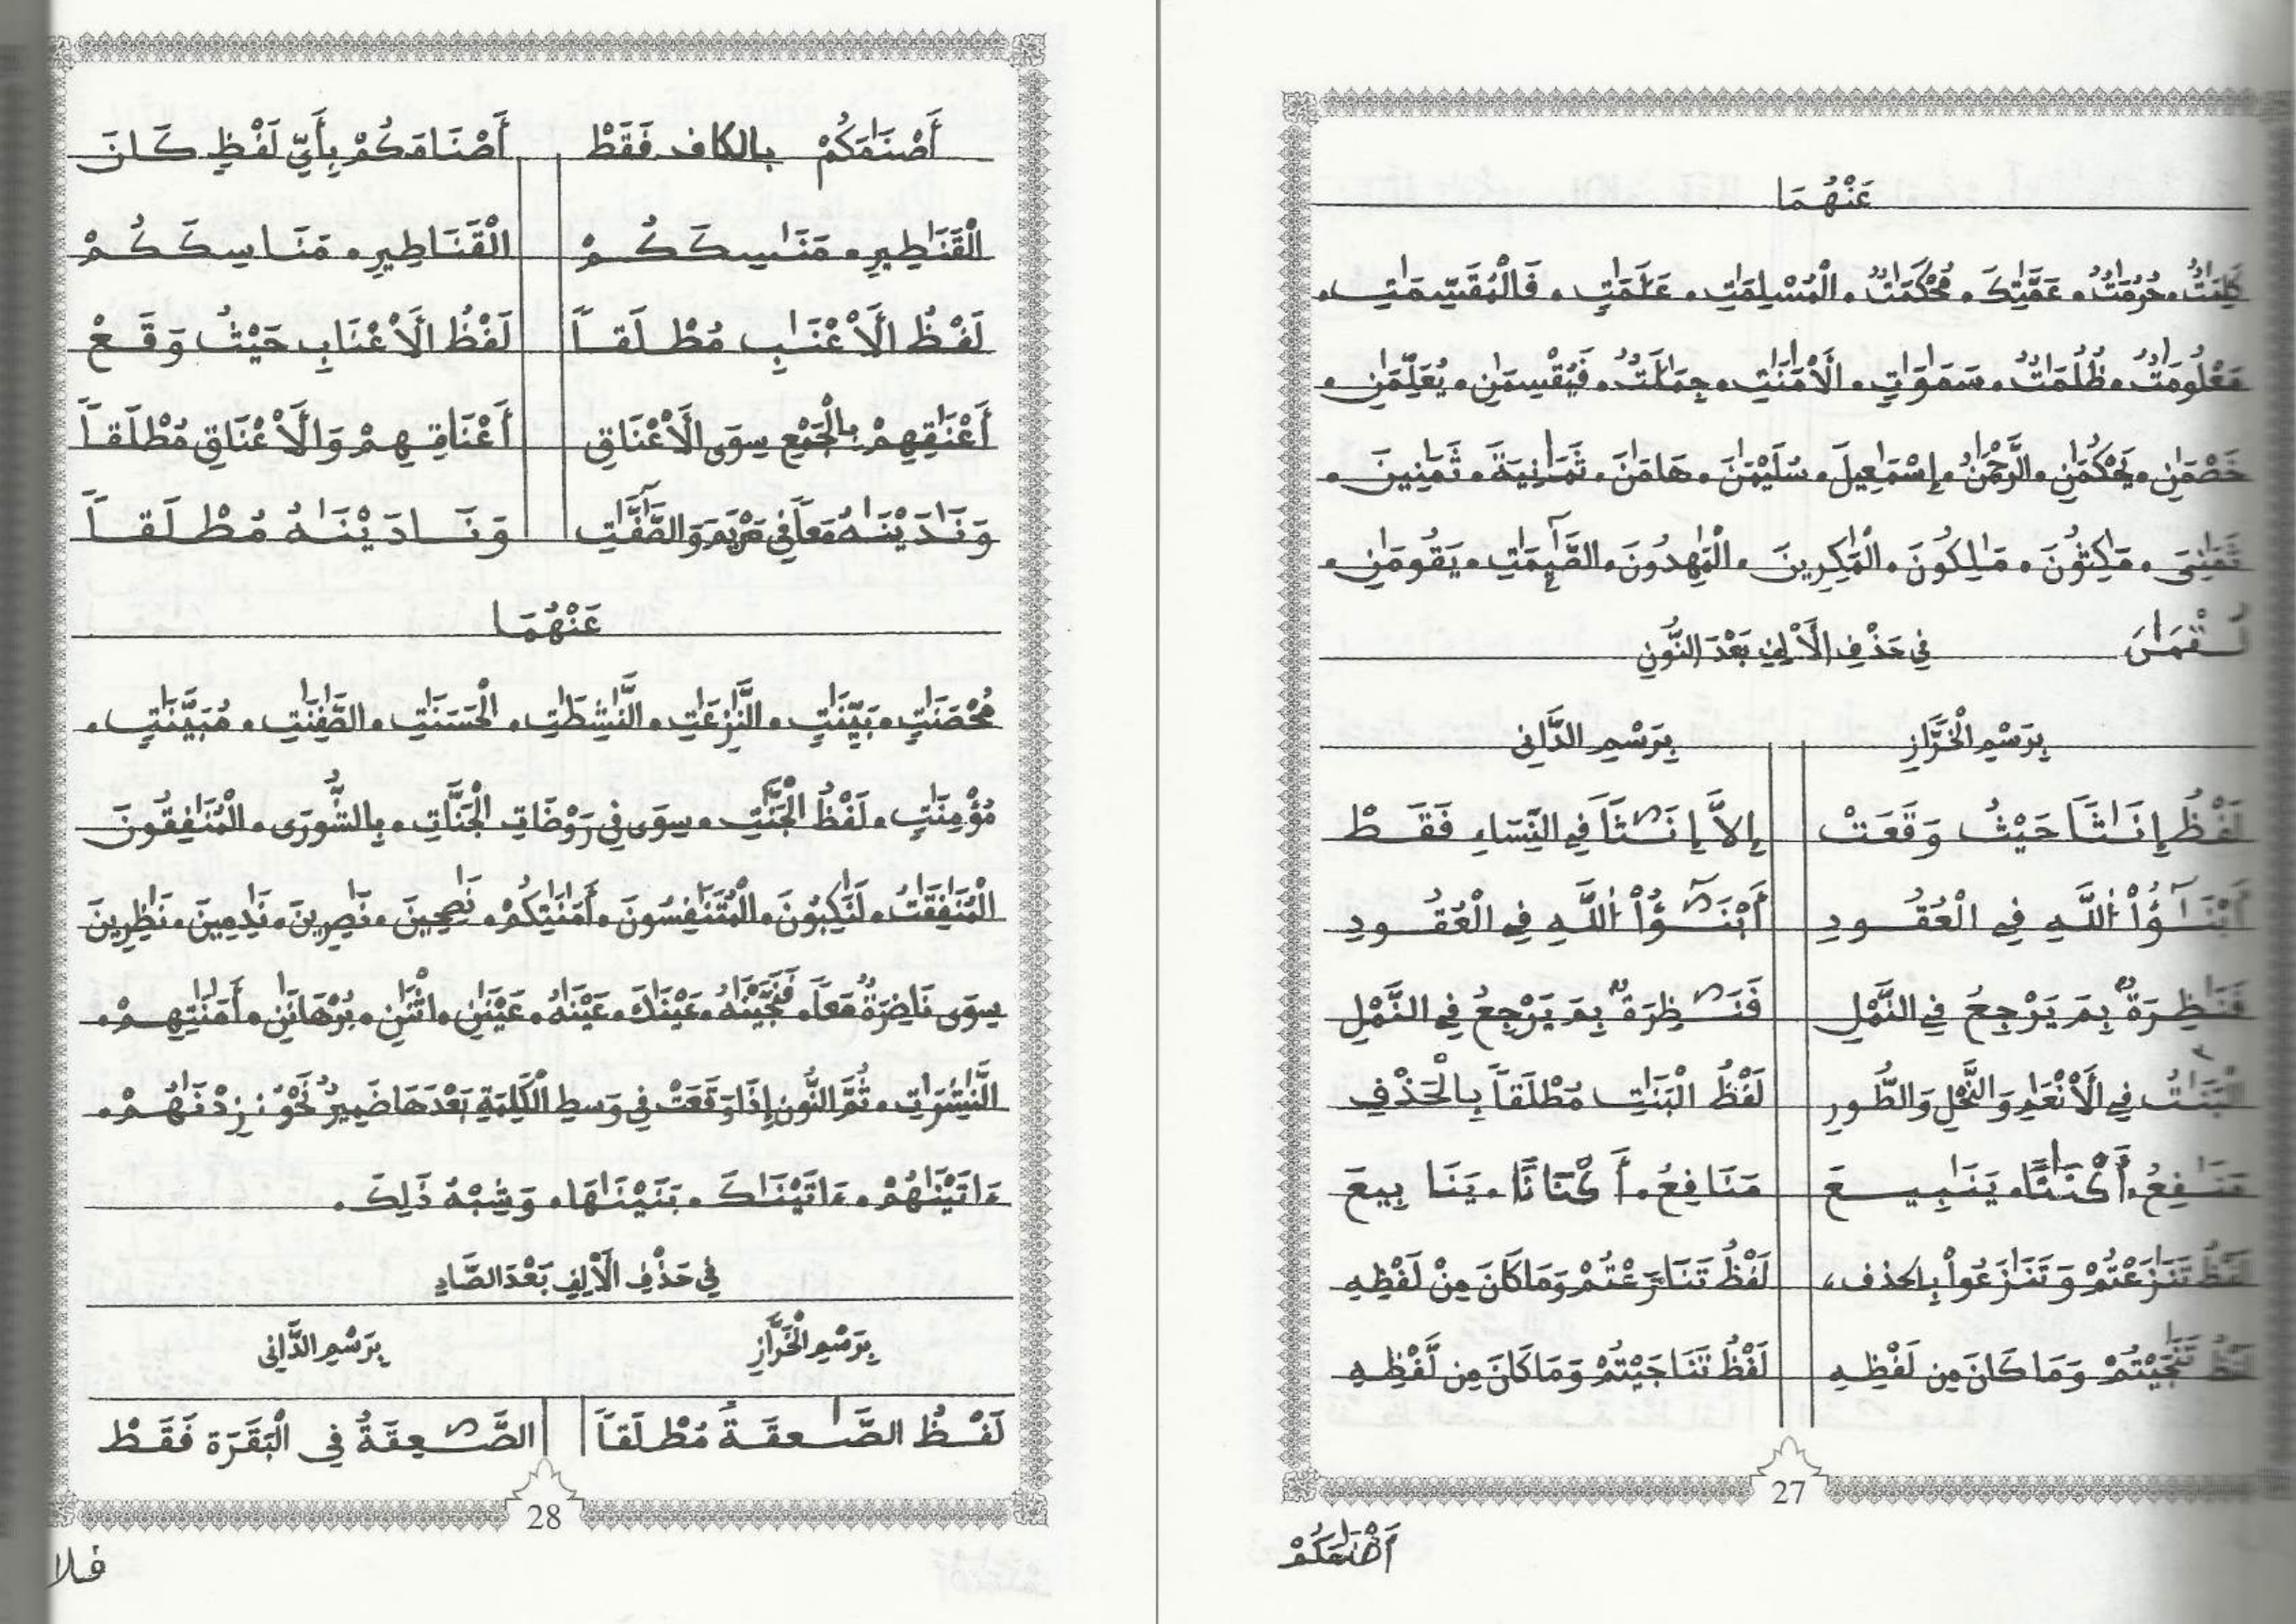 عَنْهُمَا
كَلِمَٰتُ. حُرُمَٰتُ. عَمَّٰتِكَ. مُحْكَمَٰتٌ. الْمُسْلِمَٰتِ. عَلَٰمَٰتٍ. فَالْمُقَسِّمَٰتِ.
مَعْلُومَٰتٌ. ظُلُمَٰتٌ. سَمَٰوَٰتٍ. الْأَمَٰنَٰتِ. جِمَٰلَٰتٌ. فَيُقْسِمَٰنِ. يُعَلِّمَٰنِ.
خَصْمَٰنِ. يَحْكُمَٰنِ. الرَّحْمَٰنُ. إِسْمَٰعِيلَ. سُلَيْمَٰنَ. هَامَٰنَ. ثَمَٰنِيَةَ. ثَمَٰنِينَ.
ثَمَٰنِىَ. مَٰكِثُونَ. مَٰلِكُونَ. الْمَٰكِرِينَ. الْمَٰهِدُونَ. الصَّٰٓئِمَٰتِ. يَقُومَٰنِ.
فِي حَذْفِ الْأَلِفِ بَعْدَ النُّونِ
بِرَسْمِ الْخَرَّازِ بِرَسْمِ الدَّانِى
لَفْظُ إِنَٰثاً حَيْثُ وَقَعَتْ إِلاَّ إِنَٰثاً فِي النِّسَاءِ فَقَطْ
أَبْنَٰٓؤُاْ اللَّهِ فِي الْعُقُودِ أَبْنَٰٓؤُاْ اللَّهِ فِي الْعُقُودِ
فَنَٰظِرَةٌ بِمَ يَرْجِعُ فِي النَّمْلِ فَنَٰظِرَةٌ بِمَ يَرْجِعُ فِي النَّمْلِ
الْبَنَٰتُ فِي الْأَنْعَٰمِ وَالنَّحْلِ وَالطُّورِ لَفْظُ الْبَنَٰتِ مُطْلَقاً بِالْحَذْفِ
مَنَٰفِعُ. أَكْنَٰناً. يَنَٰبِيعَ مَنَافِعُ. أَكْنَاناً. يَنَابِيعَ
لَفْظُ تَنَٰزَعْتُمْ وَتَنَٰزَعُواْ بالحذف، لَفْظُ تَنَازَعْتُمْ وَمَا كَانَ مِنْ لَفْظِهِ
لَفْظُ تَنَٰجَيْتُمْ وَمَا كَانَ مِن لَفْظِهِ لَفْظُ تَنَاجَيْتُمْ وَمَا كَانَ مِن لَّفْظِهِ
27
أَصْنَٰمَكُمْ
أَصْنَٰمَكُمْ بالكاف فَقَطْ أَصْنَامَكُمْ بِأَيِّ لَفْظٍ كَانَ
الْقَنَٰطِيرِ. مَنَٰسِكَكُمْ الْقَنَاطِيرِ. مَنَاسِكَكُمْ
لَفْظُ الْأَعْنَٰبِ مُطْلَقاً لَفْظُ الْأَعْنَابِ حَيْثُ وَقَعْ
أَعْنَٰقِهِمْ بِالْجَمْعِ سِوَى الْأَعْنَاقِ أَعْنَاقِهِمْ وَالْأَعْنَاقِ مُطْلَقاً
وَنَٰدَيْنَٰهُ مَعاً فِي مَرْيَمَ وَالصَّٰٓفَّٰتِ وَنَادَيْنَٰهُ مُطْلَقاً
عَنْهُمَا
مُحْصَنَٰتٍ. بَيِّنَٰتٍ. النَّٰزِعَٰتِ. النَّٰشِطَٰتِ. الْحَسَنَٰتِ. الصَّٰفِنَٰتِ. مُبَيِّنَٰتٍ.
مُؤْمِنَٰتٍ. لَفْظُ الْجَنَّٰتِ. سِوَى فِي رَوْضَاتِ الْجَنَّاتِ. بِالشُّورَى. الْمُنَٰفِقُونَ
الْمُنَٰفِقَٰتُ. لَنَٰكِبُونَ. الْمُتَنَٰفِسُونَ. أَمَٰنَٰتِكُمْ. نَٰصِحِينَ. نَٰصِرِينَ. نَٰدِمِينَ. نَٰظِرِينَ
سِوَى نَاضِرَةٌ مَعاً. فَنَجَّيْنَٰهُ. عَيْنَٰكَ. عَيْنَٰهُ. عَيْنَٰنِ. اثْنَٰنِ. بُرْهَٰنَٰنِ. أَمَٰنَٰتِهِمْ.
النَّٰشِرَٰتِ. ثُمَّ النُّونِ إِذَا وَقَعَتْ فِي وَسطِ الْكَلِمَةِ بَعْدَهَا ضَمِيرٌ نَحْوُ: زِدْنَٰهُمْ.
ءَاتَيْنَٰهُمْ. ءَاتَيْنَٰكَ. بَنَيْنَٰهَا. وَشِبْهُ ذَٰلِكَ.
فِي حَذْفِ الْأَلِفِ بَعْدَ الصَّادِ
بِرَسْمِ الْخَرَّازِ بِرَسْمِ الدَّانِى
لَفْظُ الصَّٰعِقَةُ مُطْلَقاً الصَّٰعِقَةُ فِي الْبَقَرَة فَقَطْ
28
فلا